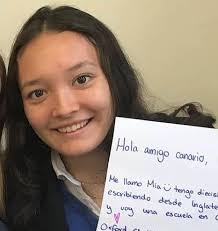 Hola amigo canario,
Me llamo Mia Ü tengo
escribiendo desde
y voy una escuela en
Oxford